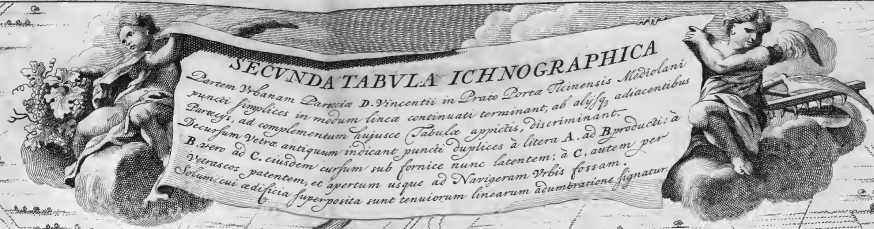 SECVNDA TABVLA ICHNOGRAPHICA
Partem Vrbanam Parœciæ D. Vincentii in Prato Portæ Ticinensis Mediolani
puncti simplices in modum lineæ continuati terminant, ab alÿsq; adiacentibus
Parœcÿs, ad complementum hujusce Tabulæ appictis, discriminant.
Decursum Vetræ antiquum indicant puncti duplices à litera A. ad B. producti: à
B. vero ad C. eiusdem cursum sub fornice nunc latentem; à C. autem per
Vetrascos patentem, et apertum usque ad Navigeram Vrbis fossam.
Solum, cui ædificia superposita sunt tenuiorum linearum adumbratione signatur